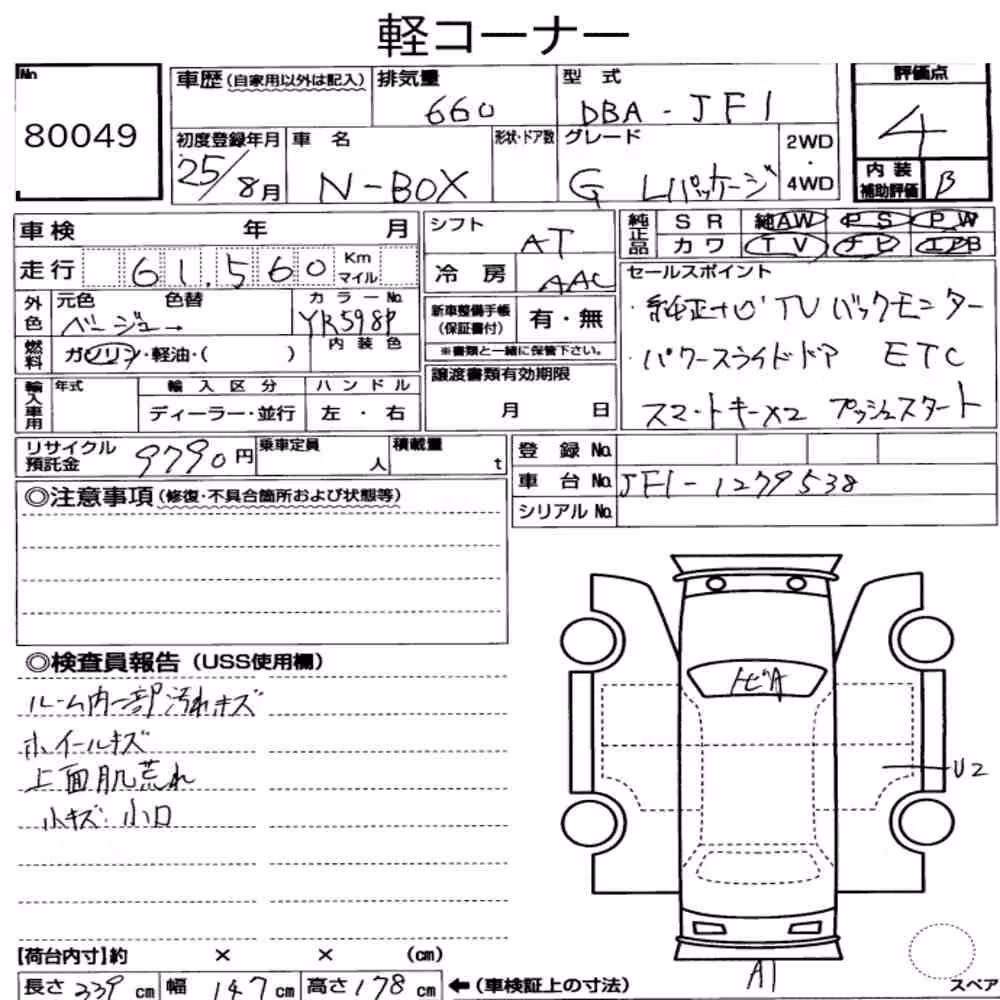 軽コーナー
No 80049
車歴(自家用以外は記入) 排気量 660 型式 DBA-JF1
初度登録年月 25/8月 車名 N-BOX 形状・ドア数 グレード G Lパッケージ 2WD・4WD
評価点 4
内装補助評価 B
車検 年 月
走行 61,560 Km マイル
外色 元色 ベージュ 色替 カラーNo. YR598P
燃料 ガソリン・軽油・( ) 内装色
輸入車用 年式 輸入区分 ディーラー・並行 ハンドル 左・右
リサイクル預託金 9790円 乗車定員 人 積載量 t
シフト AT
冷房 AAC
新車整備手帳(保証書付) 有・無
※書類と一緒に保管下さい。
譲渡書類有効期限
月 日
純正品 SR 純AW PS PW
カワ TV ナビ エアB
セールスポイント
・純正ナビ TV バックモニター
・パワースライドドア ETC
スマートキー×2 プッシュスタート
登録No.
車台No. JF1-1279538
シリアルNo.
◎注意事項(修復・不具合箇所および状態等)
◎検査員報告(USS使用欄)
ルーム内一部汚れキズ
ホイールキズ
上面肌荒れ
小キズ・小凹
トビA
U2
A1
スペア
【荷台内寸】約 × × (cm)
長さ 339 cm 幅 147 cm 高さ 178 cm ←(車検証上の寸法)